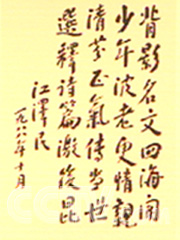 背影名文四海闻
少年波老更情亲
清芬正气传当世
选释诗篇激后昆
江泽民
一九八八年十月